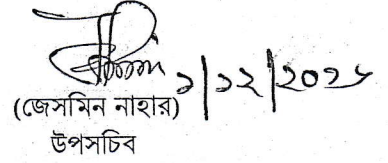 ১/১২/২০২৫
(জেসমিন নাহার)
উপসচিব